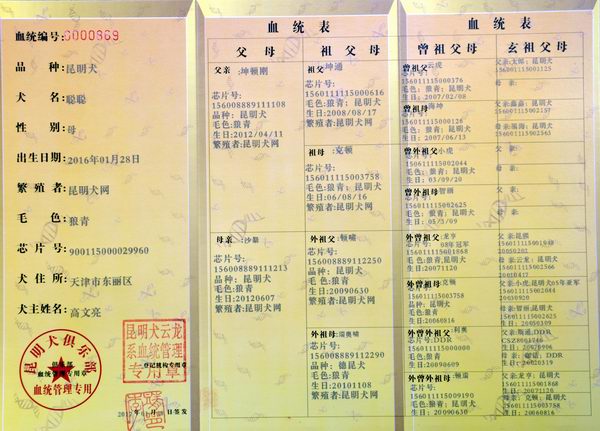 血统编号:0000869
品 种:昆明犬
犬 名:聪聪
性 别:母
出生日期:2016年01月28日
繁 殖 者:昆明犬网
毛 色:狼青
芯 片 号:900115000029960
犬 住 所:天津市东丽区
犬主姓名:高文亮
昆明犬俱乐部
血统管理专用章
血统管理专用
昆明犬云龙
系血统管理
专用章
登记机构专用章
日签发
血 统 表
父 母
祖 父 母
父亲:坤顿刚
芯片号:
156008889111108
品种:昆明犬
毛色:狼青
生日:2012/04/11
繁殖者:昆明犬网
祖父:坤通
芯片号:
1560111115000616
毛色:狼青;昆明犬
生日:2008/08/17
繁殖者:昆明犬网
祖母:克顿
芯片号:
156011115003758
毛色:狼青;昆明犬
生日:06/08/16
繁殖者:昆明犬网
母亲:沙暴
芯片号:
156008889111213
品种:昆明犬
毛色:狼青
生日:20120607
繁殖者:昆明犬网
外祖父:顿啸
芯片号:
156008889112250
品种:昆明犬
毛色:狼青
生日:20090630
外祖母:瑞奥啸
芯片号:
156008889112290
品种:德昆犬
毛色:狼青
生日:20101108
繁殖者:昆明犬网
血 统 表
曾祖父母
玄祖父母
曾祖父:云虎
芯片号:
1560111115000376
毛色:狼青;昆明犬
生日:2007/02/08
父亲:太郎;昆明犬
156011115001125
母亲:
曾祖母:海坤
芯片号:
156011115000126
毛色:狼青;昆明犬
生日:2007/06/13
昆明犬
156011115000528
昆明犬
156011115000532
曾外祖父:小虎
芯片号:
156011115002044
生日:03/09/20
父亲:
母亲:
曾外祖母:智丽
芯片号:
156011115002625
毛色:狼青;昆明犬
生日:05/03/09
父亲:
母亲:
外曾祖父:龙亨
芯片号:08年冠军
156011115001868
毛色:狼青,昆明犬
生日:20071120
昆明犬
母亲:云龙;昆明犬
20040317
外曾祖母:克顿
芯片号:
156011115003758
昆明犬
毛色:狼青
生日:20060816
父亲:小虎,昆明犬05年亚军
156011115002084
20030920
母亲:智丽;昆明犬
156011115002625
20050309
外曾外祖父:利奥
芯片号:DDR
毛色:狼青
生日:20090630
DDR
外曾外祖母:顿瑞
芯片号:
毛色:狼青
生日:20090630
父亲:龙亨;昆明犬
156011115001868
20071120
母亲:克顿;昆明犬
20060816